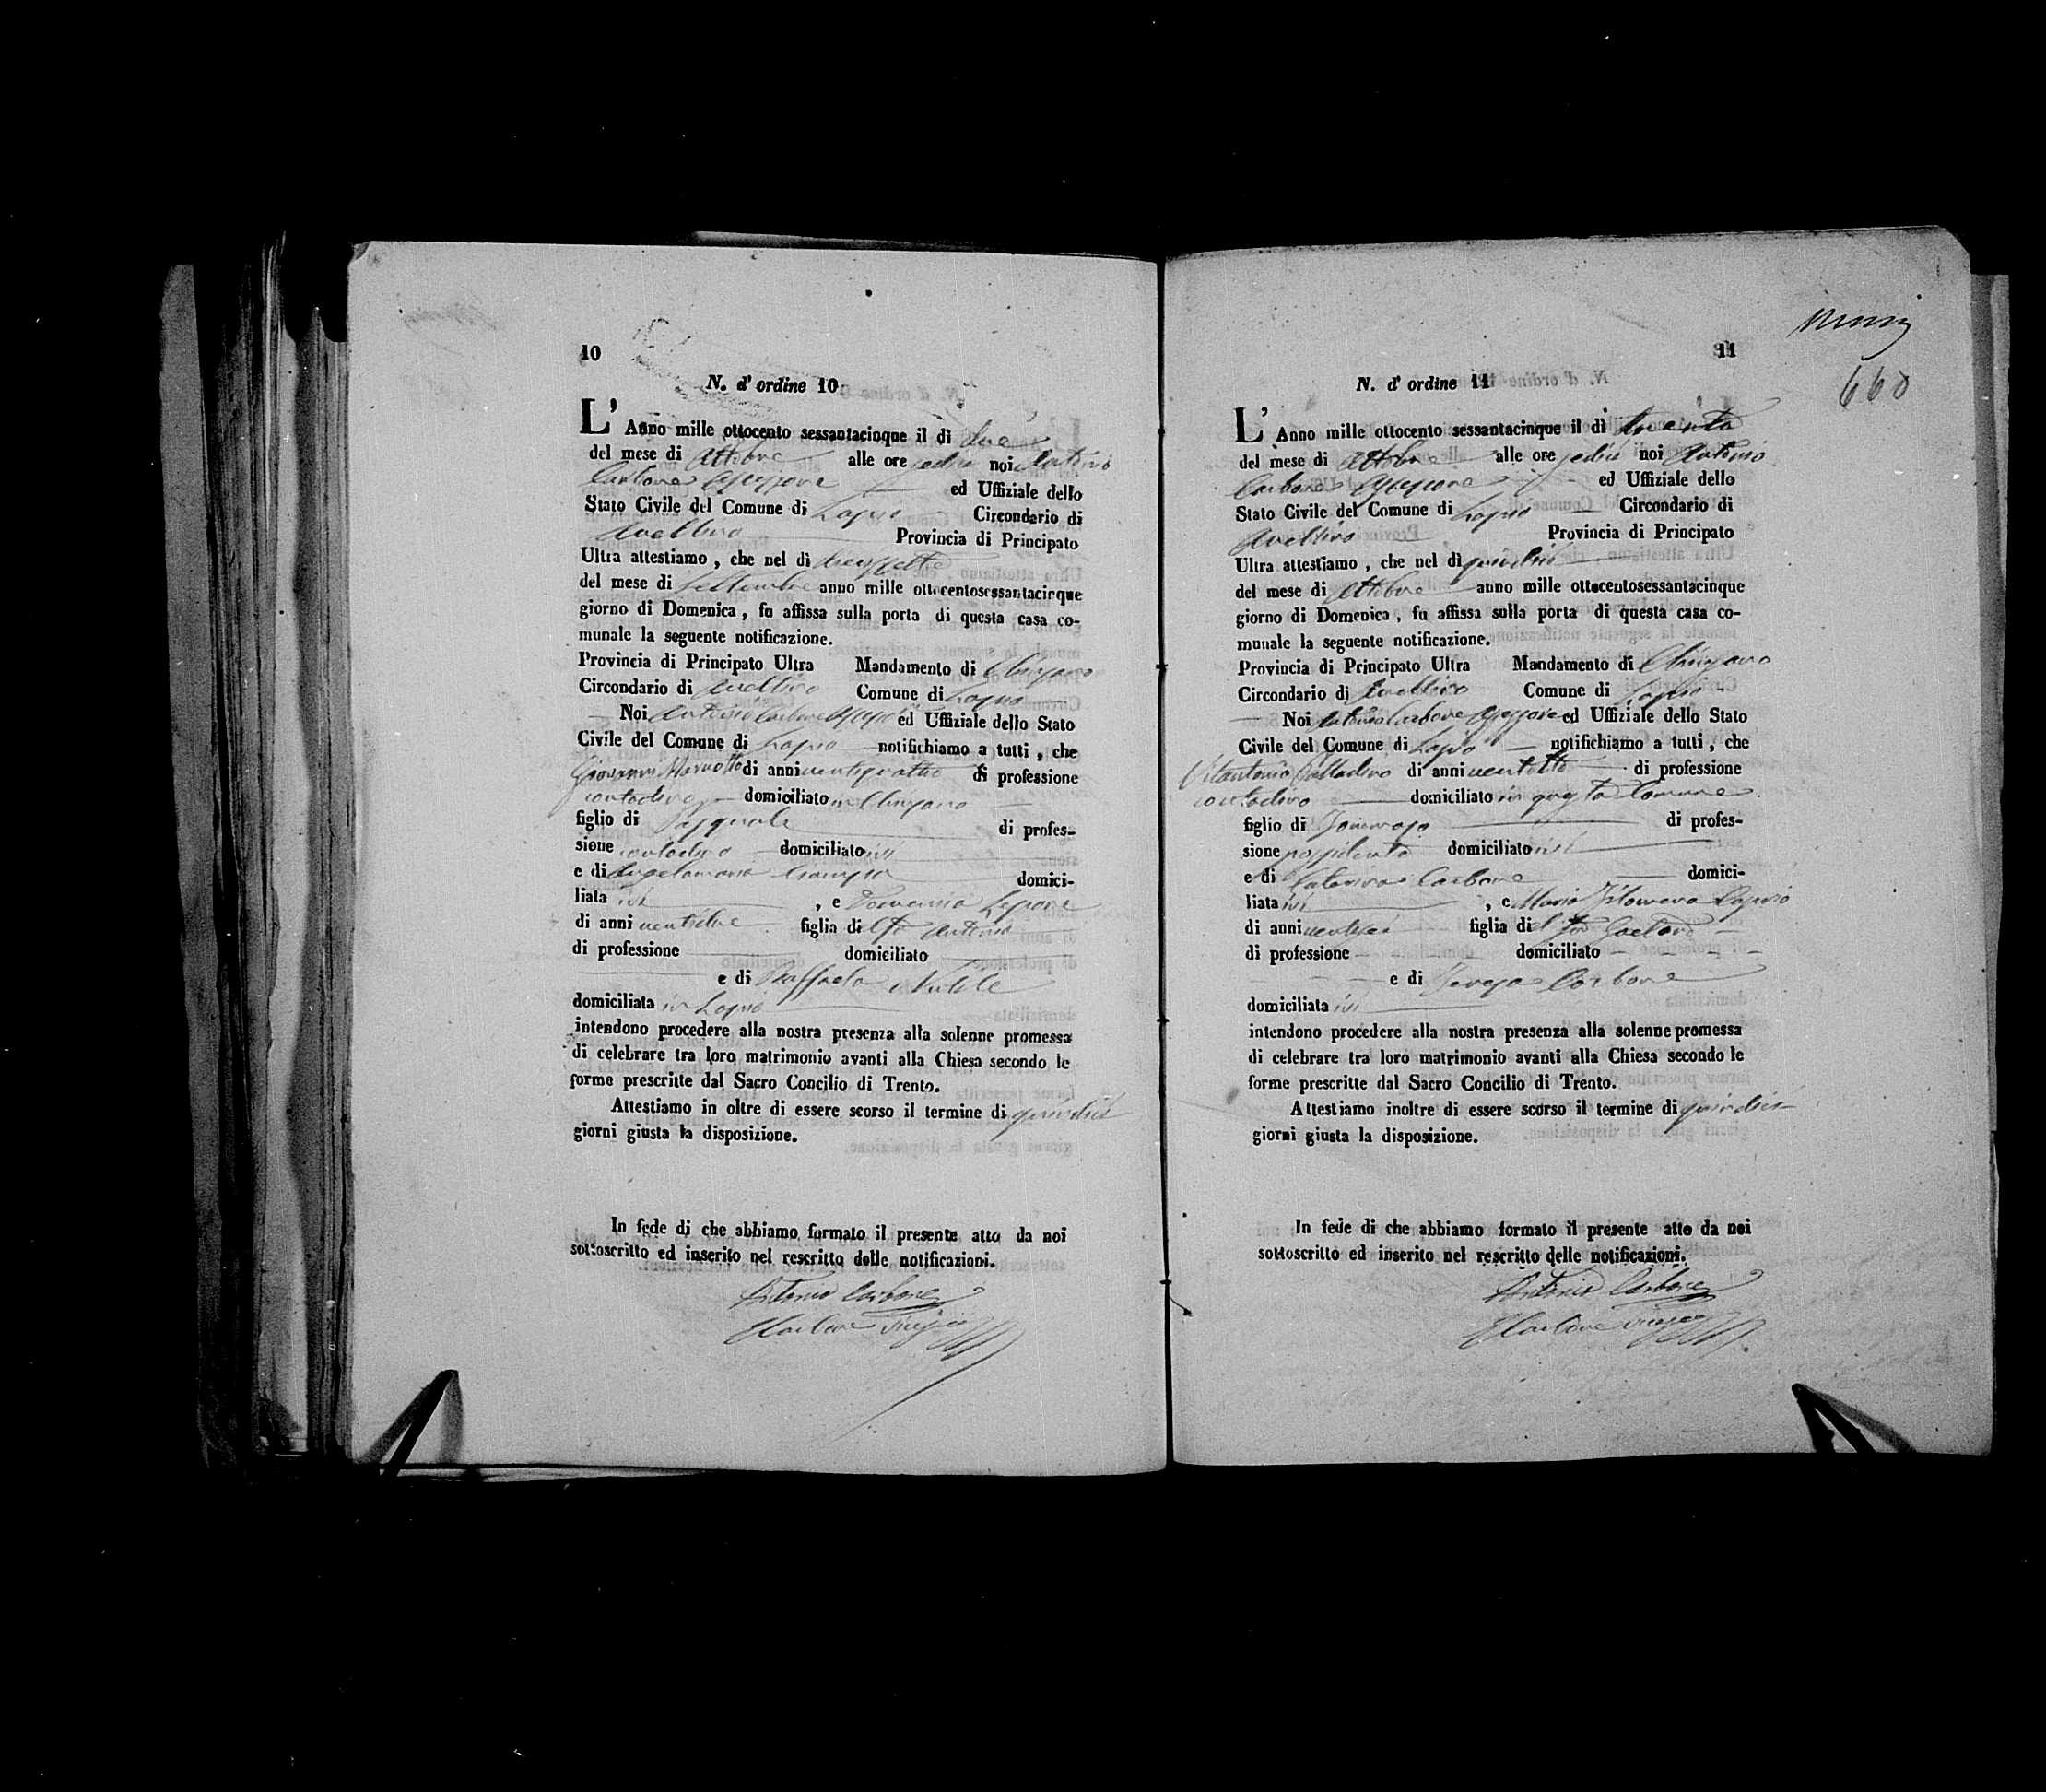 10
N. d' ordine 10
L' Anno mille ottocento sessantacinque il dì due
del mese di Ottobre alle ore sedici noi Antonio
Carbone Assessore ed Uffiziale dello
Stato Civile del Comune di Lapio Circondario di
Avellino Provincia di Principato
Ultra attestiamo , che nel dì diciassette
del mese di Settembre anno mille ottocentosessantacinque
giorno di Domenica , fu affissa sulla porta di questa casa co-
munale la seguente notificazione.
Provincia di Principato Ultra Mandamento di Chiusano
Circondario di Avellino Comune di Lapio
Noi Antonio Carbone Assessore ed Uffiziale dello Stato
Civile del Comune di Lapio notifichiamo a tutti , che
Giovanni di anni ventiquattro di professione
contadino domiciliato in Chiusano
figlio di Pasquale di profes-
sione contadino domiciliato ivi
e di Angelamaria domici-
liata ivi , e Lepore
di anni ventidue figlia di Antonio
di professione domiciliato
e di Raffaela
domiciliata in Lapio
intendono procedere alla nostra presenza alla solenne promessa
di celebrare tra loro matrimonio avanti alla Chiesa secondo le
forme prescritte dal Sacro Concilio di Trento.
Attestiamo in oltre di essere scorso il termine di quindici
giorni giusta la disposizione.
In fede di che abbiamo formato il presente atto da noi
sottoscritto ed inserito nel rescritto delle notificazioni.
Antonio Carbone
11
660
N. d' ordine 11
L' Anno mille ottocento sessantacinque il dì trenta
del mese di Ottobre alle ore sedici noi Antonio
Carbone Assessore ed Uffiziale dello
Stato Civile del Comune di Lapio Circondario di
Avellino Provincia di Principato
Ultra attestiamo , che nel dì quindici
del mese di Ottobre anno mille ottocentosessantacinque
giorno di Domenica , fu affissa sulla porta di questa casa co-
munale la seguente notificazione.
Provincia di Principato Ultra Mandamento di Chiusano
Circondario di Avellino Comune di Lapio
Noi Antonio Carbone Assessore ed Uffiziale dello Stato
Civile del Comune di Lapio notifichiamo a tutti , che
Vitantonio Palladino di anni ventotto di professione
contadino domiciliato in questa Comune
figlio di Tommaso di profes-
sione possidente domiciliato ivi
e di Caterina Carbone domici-
liata ivi , e Maria Filomena Caputo
di anni ventisei figlia del fu Gaetano
di professione domiciliato
e di Teresa Carbone
domiciliata ivi
intendono procedere alla nostra presenza alla solenne promessa
di celebrare tra loro matrimonio avanti alla Chiesa secondo le
forme prescritte dal Sacro Concilio di Trento.
Attestiamo inoltre di essere scorso il termine di quindici
giorni giusta la disposizione.
In fede di che abbiamo formato il presente atto da noi
sottoscritto ed inserito nel rescritto delle notificazioni.
Antonio Carbone